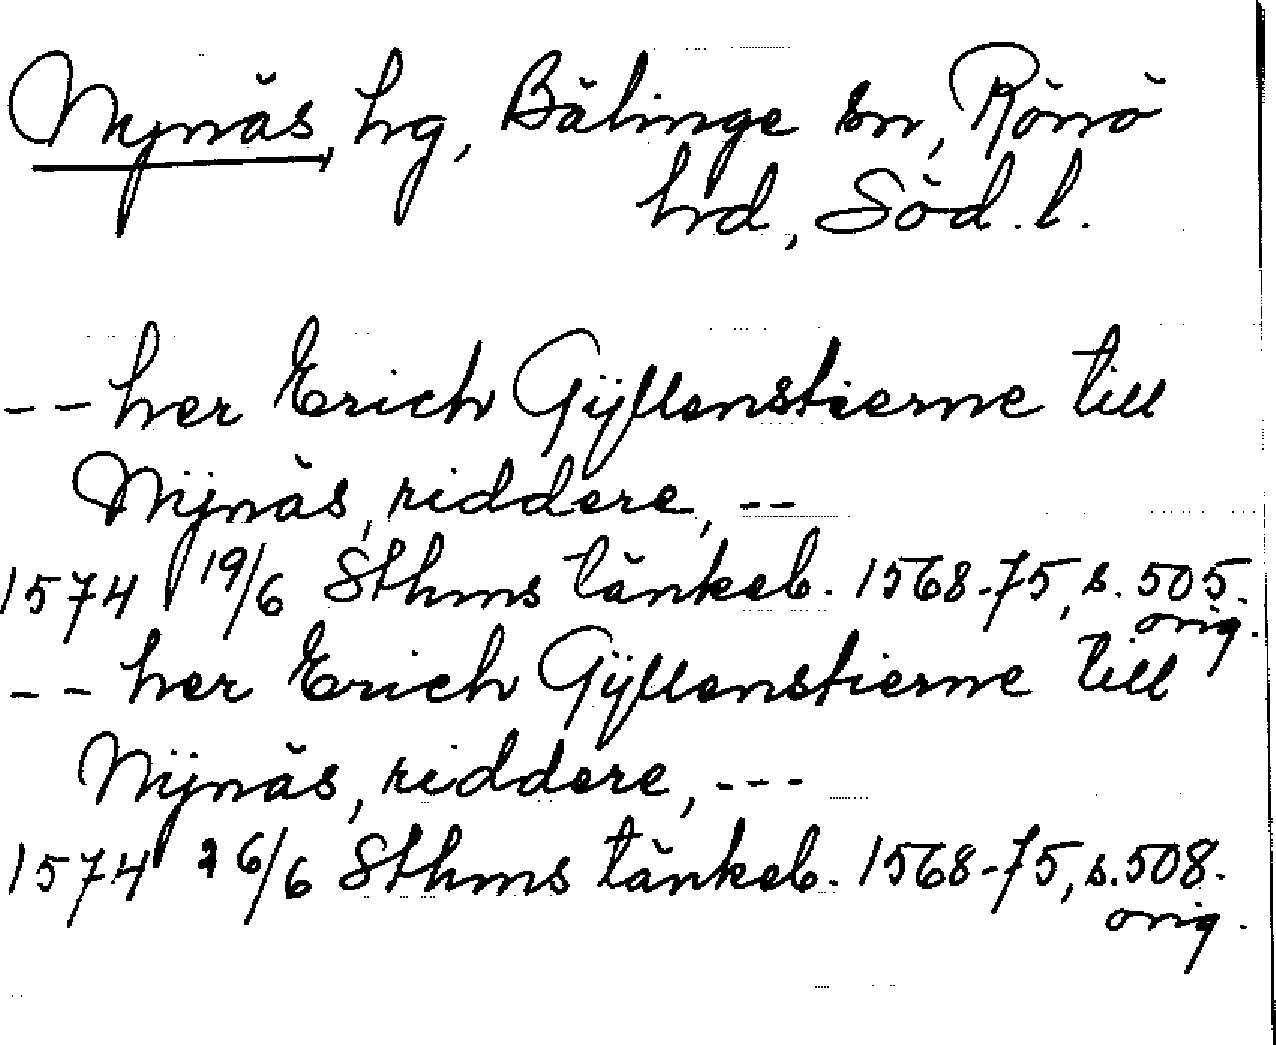 Nynäs, hg, Bälinge sn, Rönö
hrd, Söd. l.
-- her Erich Gÿllenstierne till
Nÿnäs, riddere, --
1574 19/6 Sthms tänkeb. 1568-75, s. 505.
orig.
-- her Erich Gÿllenstierne till
Nÿnäs, riddere, ---
1574 26/6 Sthms tänkeb. 1568-75, s. 508.
orig.